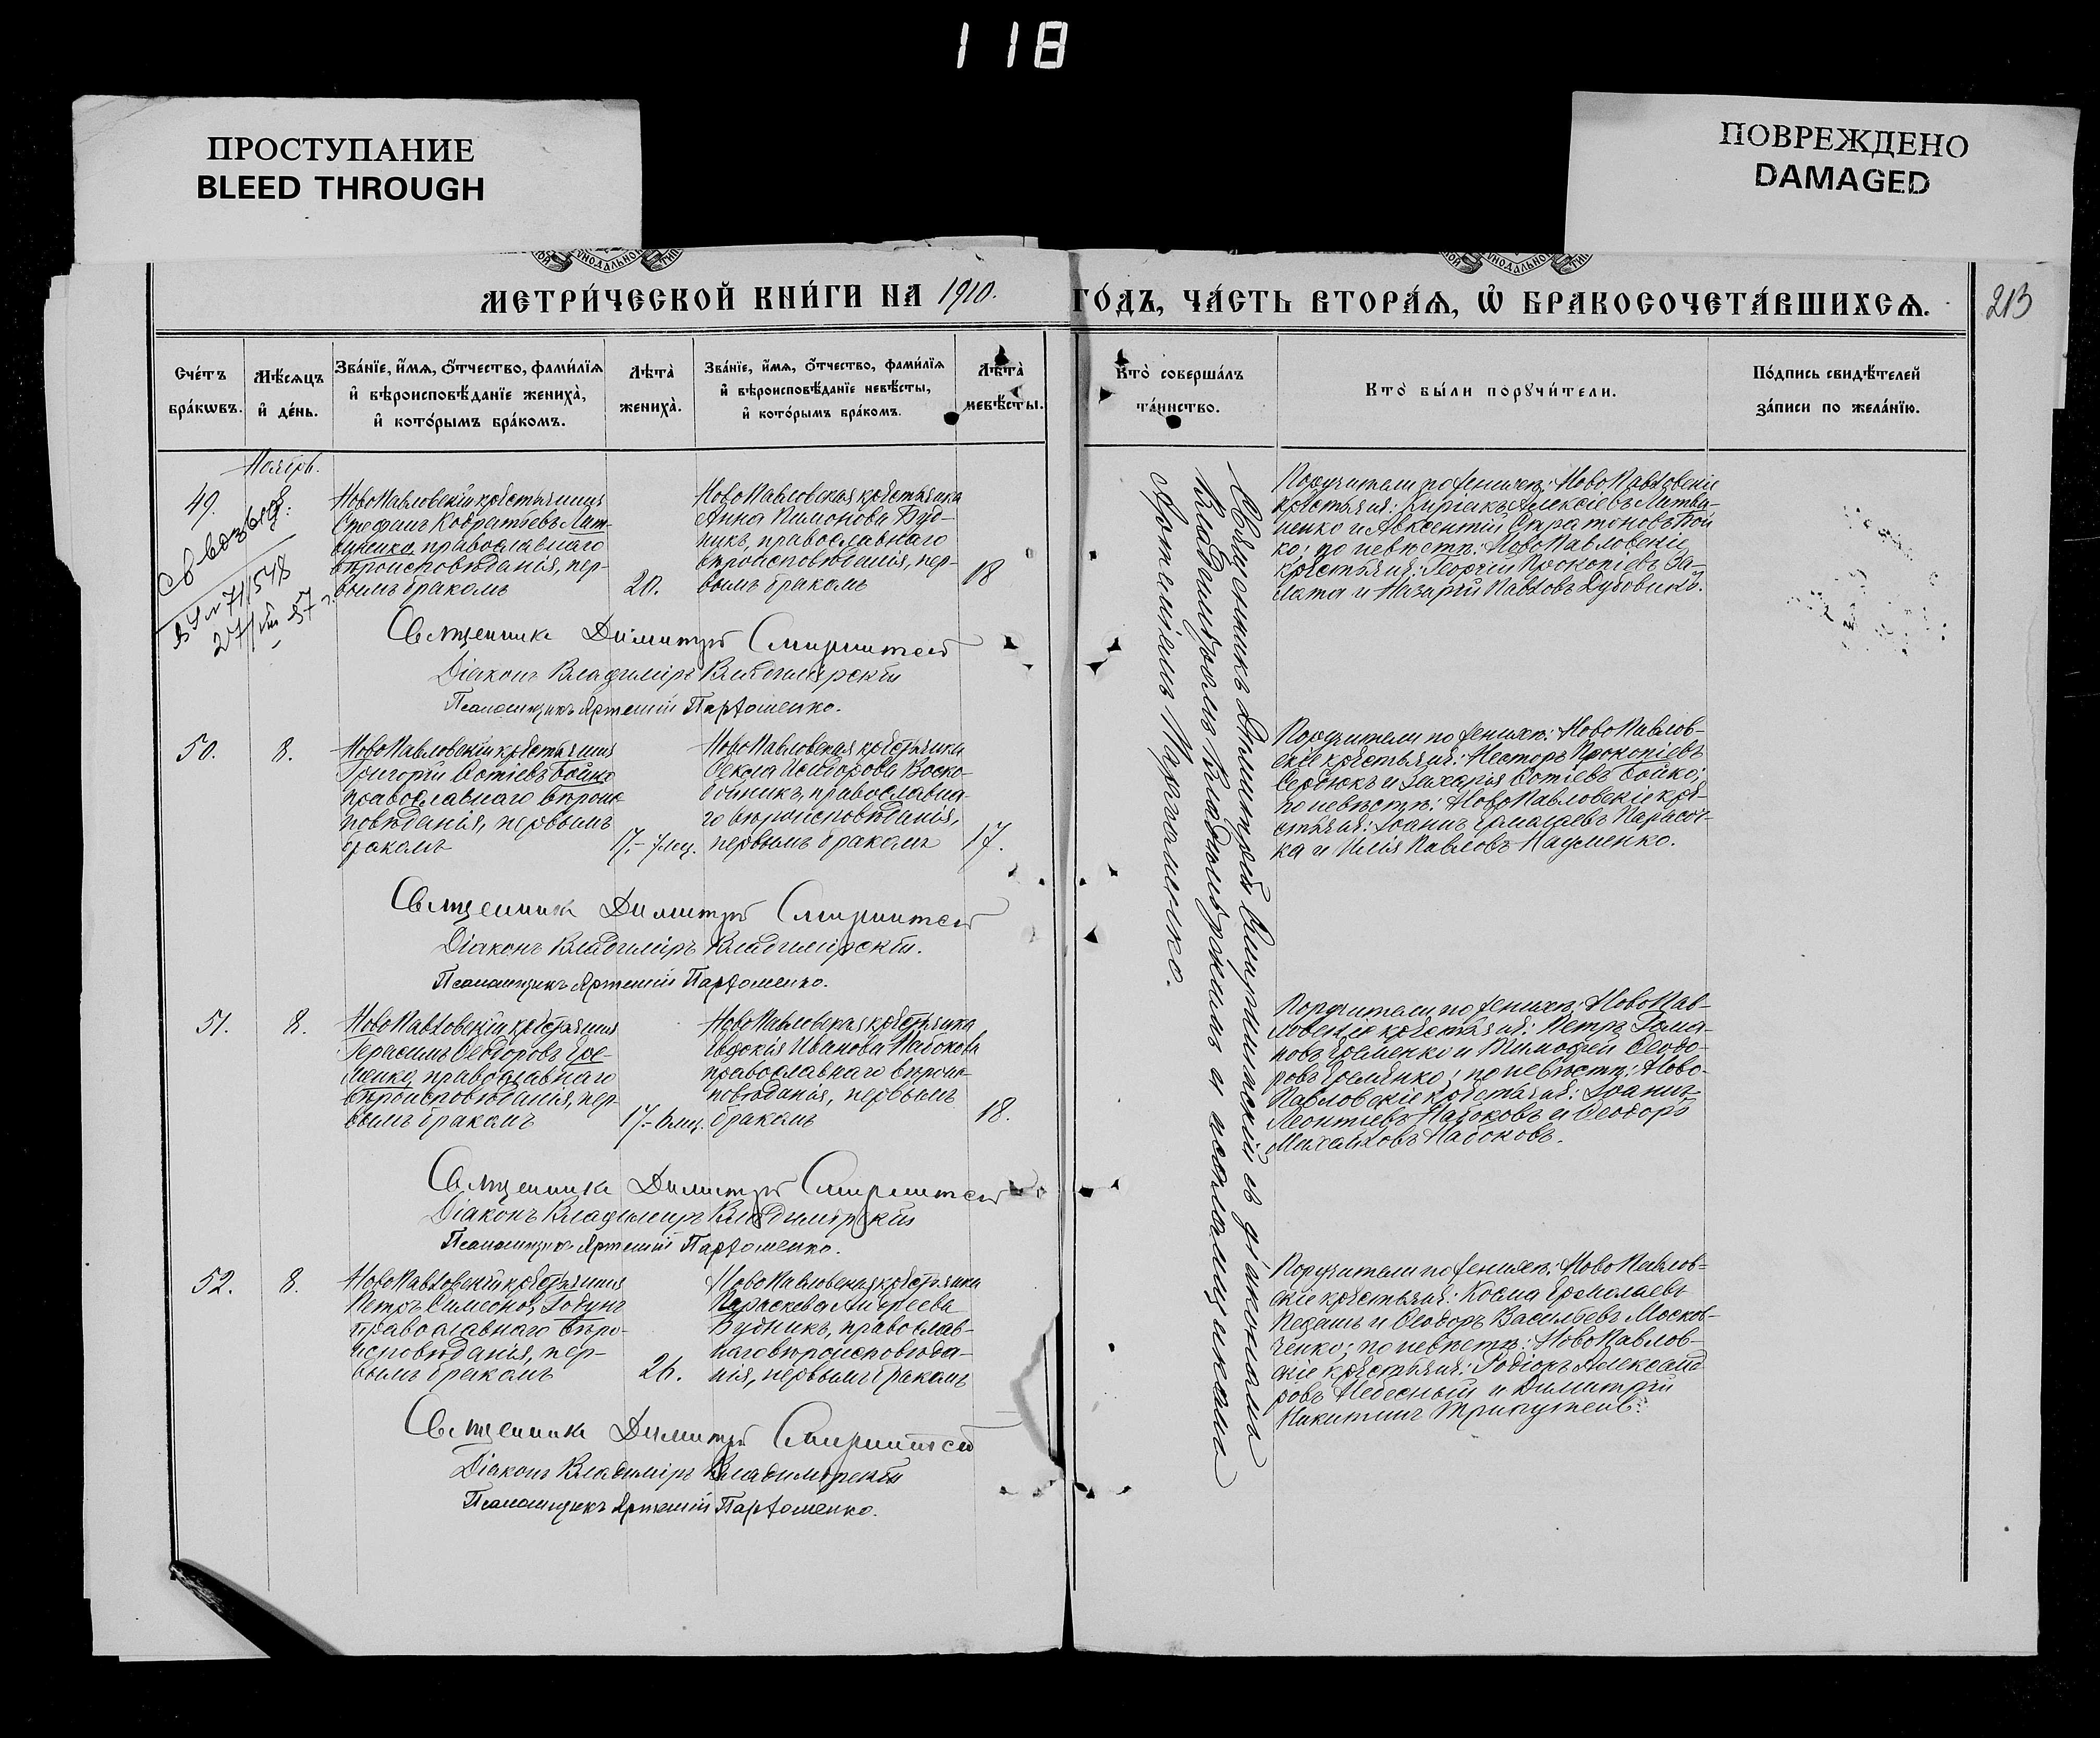 118
ПРОСТУПАНИЕ
BLEED THROUGH
ПОВРЕЖДЕНО
DAMAGED
МЕТРИ́ЧЕСКОЙ КНИ́ГИ НА 1910. ГО́ДЪ, ЧА́СТЬ ВТОРА́Ѧ, Ѽ БРАКОСОЧЕТА́ВШИХСѦ.
213
Сче́тъ
бра́кѡвъ.
Мѣ́сѧцъ
и҆ де́нь.
Зва́нїе, и҆́мѧ, ѻ҆́тчество, фами́лїѧ
и҆ вѣроисповѣ́данїе жениха̀,
и҆ кото́рымъ бра́комъ.
Лѣ́та̀
жениха̀.
Зва́нїе, и҆́мѧ, ѻ҆́тчество, фами́лїѧ
и҆ вѣроисповѣ́данїе невѣ́сты,
и҆ кото́рымъ бра́комъ.
Лѣ́та̀
невѣ́сты.
Кто̀ соверша́лъ
та́инство.
Кто̀ бы́ли порꙋчи́тели.
По́дпись свидѣ́телей
за́писи по жела́нїю.
Ноябрь.
49.
НовоПавловскій крестьянинъ
Стефанъ Кодратьевъ Лит-
виненко, православнаго
вѣроисповѣданія, пер-
вымъ бракомъ
20.
НовоПавловская крестьянка
Анна Пимонова Буд-
никъ, православнаго
вѣроисповѣданія, пер-
вымъ бракомъ
18
Поручители по женихѣ: НовоПавловскіе
крестьяне: Киріакъ Алексіевъ Литви-
ненко и Авксентій Стратоновъ Бой
ко; по невѣстѣ: НовоПавловскіе
крестьяне: Георгій Прокопіевъ За-
лата и Назарій Павловъ Дубовикъ.
Священникъ Димитрій
Діаконъ Владиміръ Владимірскій
Псаломщикъ Артемій Пархоменко.
50.
8.
НовоПавловскій крестьянинъ
Григорій Фотіевъ Бойко
православнаго вѣроис-
повѣданія, первымъ
бракомъ
17.- 7 мц.
НовоПавловская крестьянка
Ѳекла Исидорова Воско-
бойникъ, православна-
го вѣроисповѣданія,
первымъ бракомъ
17.
Поручители по женихѣ: НовоПавлов-
скіе крестьяне: Несторъ Прокопіевъ
Сердюкъ и Захарія Фотіевъ Бойко;
по невѣстѣ: НовоПавловскіе кре-
стьяне: Іоаннъ Ермолаевъ
и Илія Павловъ
Священникъ Димитрій
Діаконъ Владиміръ Владимірскій.
Псаломщикъ Артемій Пархоменко.
51.
8.
НовоПавловскій крестьянинъ
Герасимъ Ѳеодоровъ Ере-
менко, православнаго
вѣроисповѣданія, пер-
вымъ бракомъ
17.- 6 мц.
НовоПавловская крестьянка
Евдокія Иванова Набокова
православнаго вѣроис-
повѣданія, первымъ
бракомъ
18.
Поручители по женихѣ: НовоПав-
ловскіе крестьяне: Петръ Рома-
новъ Еременко и Тимофей Ѳеодо-
ровъ Еременко; по невѣстѣ: Ново-
Павловскіе крестьяне: Іоаннъ
Леонтіевъ Набоковъ и Ѳеодоръ
Михайловъ Набоковъ.
Священникъ Димитрій
Діаконъ Владиміръ Владимірскій
Псаломщикъ Артемій Пархоменко.
52.
8.
НовоПавловскій крестьянинъ
Петръ Симеоновъ Говунъ
православнаго вѣро-
исповѣданія, пер-
вымъ бракомъ
26.
НовоПавловская крестьянка
Параскева Андреева
Будникъ, православ-
наго вѣроисповѣда-
нія, первымъ бракомъ
Поручители по женихѣ: НовоПавлов-
скіе крестьяне: Косма Ермолаевъ
и Ѳеодоръ Васильевъ Москов-
ченко; по невѣстѣ: НовоПавлов-
скіе крестьяне: Родіонъ Александ
ровъ Небесный и Димитрій
Никитинъ
Священникъ Димитрій
Діаконъ Владиміръ Владимірскій
Псаломщикъ Артемій Пархоменко.
Священникъ Димитрій съ діакономъ
Владиміромъ Владимірскимъ и псаломщикомъ
Артеміемъ Пархоменко.